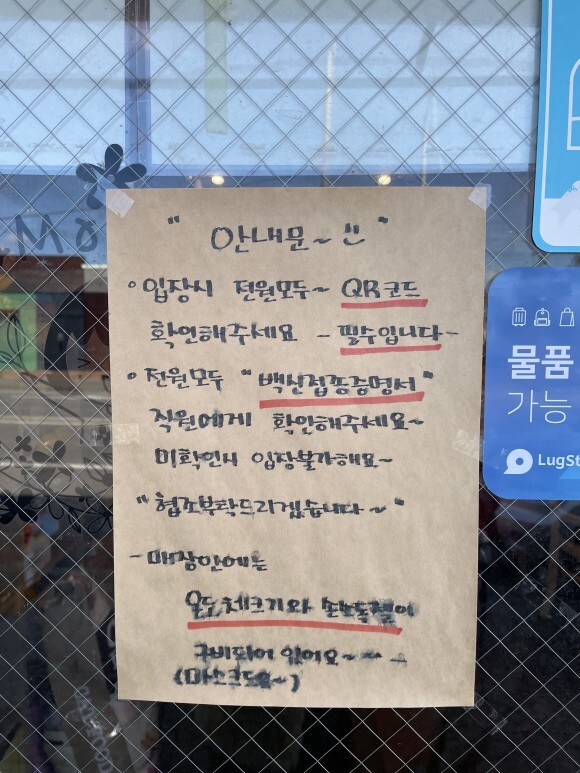 " 안내문~ "
◦ 입장시 전원모두~ QR코드
확인해주세요 - 필수입니다-
◦ 전원모두 "백신접종증명서"
직원에게 확인해주세요~
미확인시 입장불가해요~
"협조부탁드리겠습니다~"
- 매장안에는
온도체크기와 손소독젤이
구비되어 있어요~~
(마스크도요~)
물품
가능
LugSt